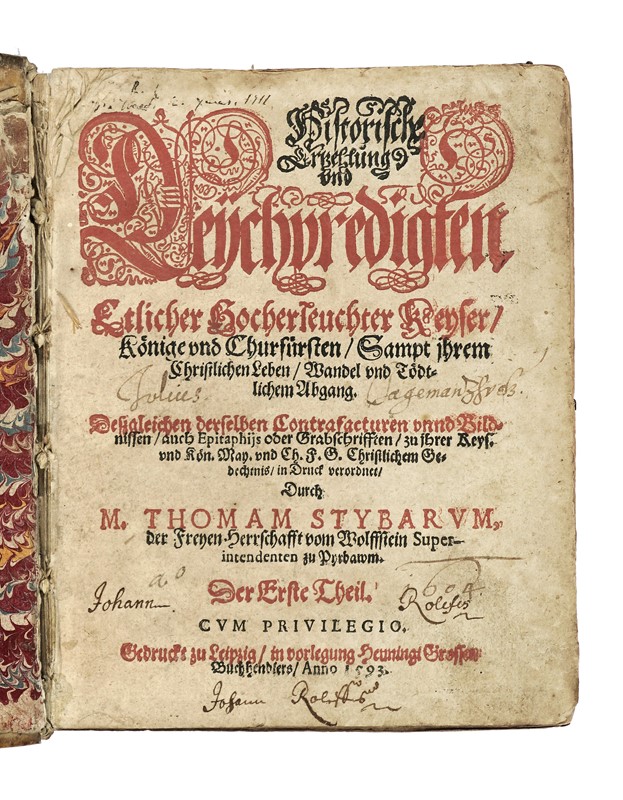 1711
Historische
Erzehlung
vnd
Leÿchpredigten,
Etlicher Hocherleuchter Keyser/
Könige vnd Churfürsten/ Sampt jhrem
Christlichen Leben/ Wandel vnd Tödt-
lichem Abgang.
Julius. Hageman
Deßgleichen derselben Contrafacturen vnnd Bild-
nissen/ auch Epitaphijs oder Grabschrifften/ zu jhrer Keys.
vnd Kön. May. vnd Ch. F. G. Christlichem Ge-
dechtnis/ in Druck verordnet/
Durch
M. THOMAM STYBARVM,
der Freyen Herrschafft vom Wolffstein Super-
intendenten zu Pyrbawm.
a o 1604.
Der Erste Theil.
Johann Rolefes
CVM PRIVILEGIO.
Gedruckt zu Leipzig/ in vorlegung Henningi Grossen
Buchhendlers/ Anno 1593.
Johann